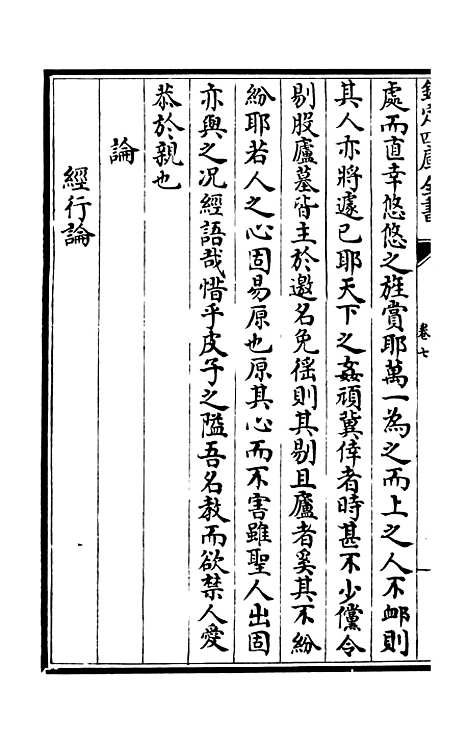 欽定四庫全書
卷七
處而直幸悠悠之旌賞耶萬一為之而上之人不卹則
其人亦將遽已耶天下之姦頑冀倖者時甚不少儻令
剔股廬墓皆主於邀名免徭則其剔且廬者奚其不紛
紛耶若人之心固易原也原其心而不害雖聖人出固
亦與之况經語哉惜乎皮子之隘吾名教而欲禁人愛
恭於親也
論
經行論